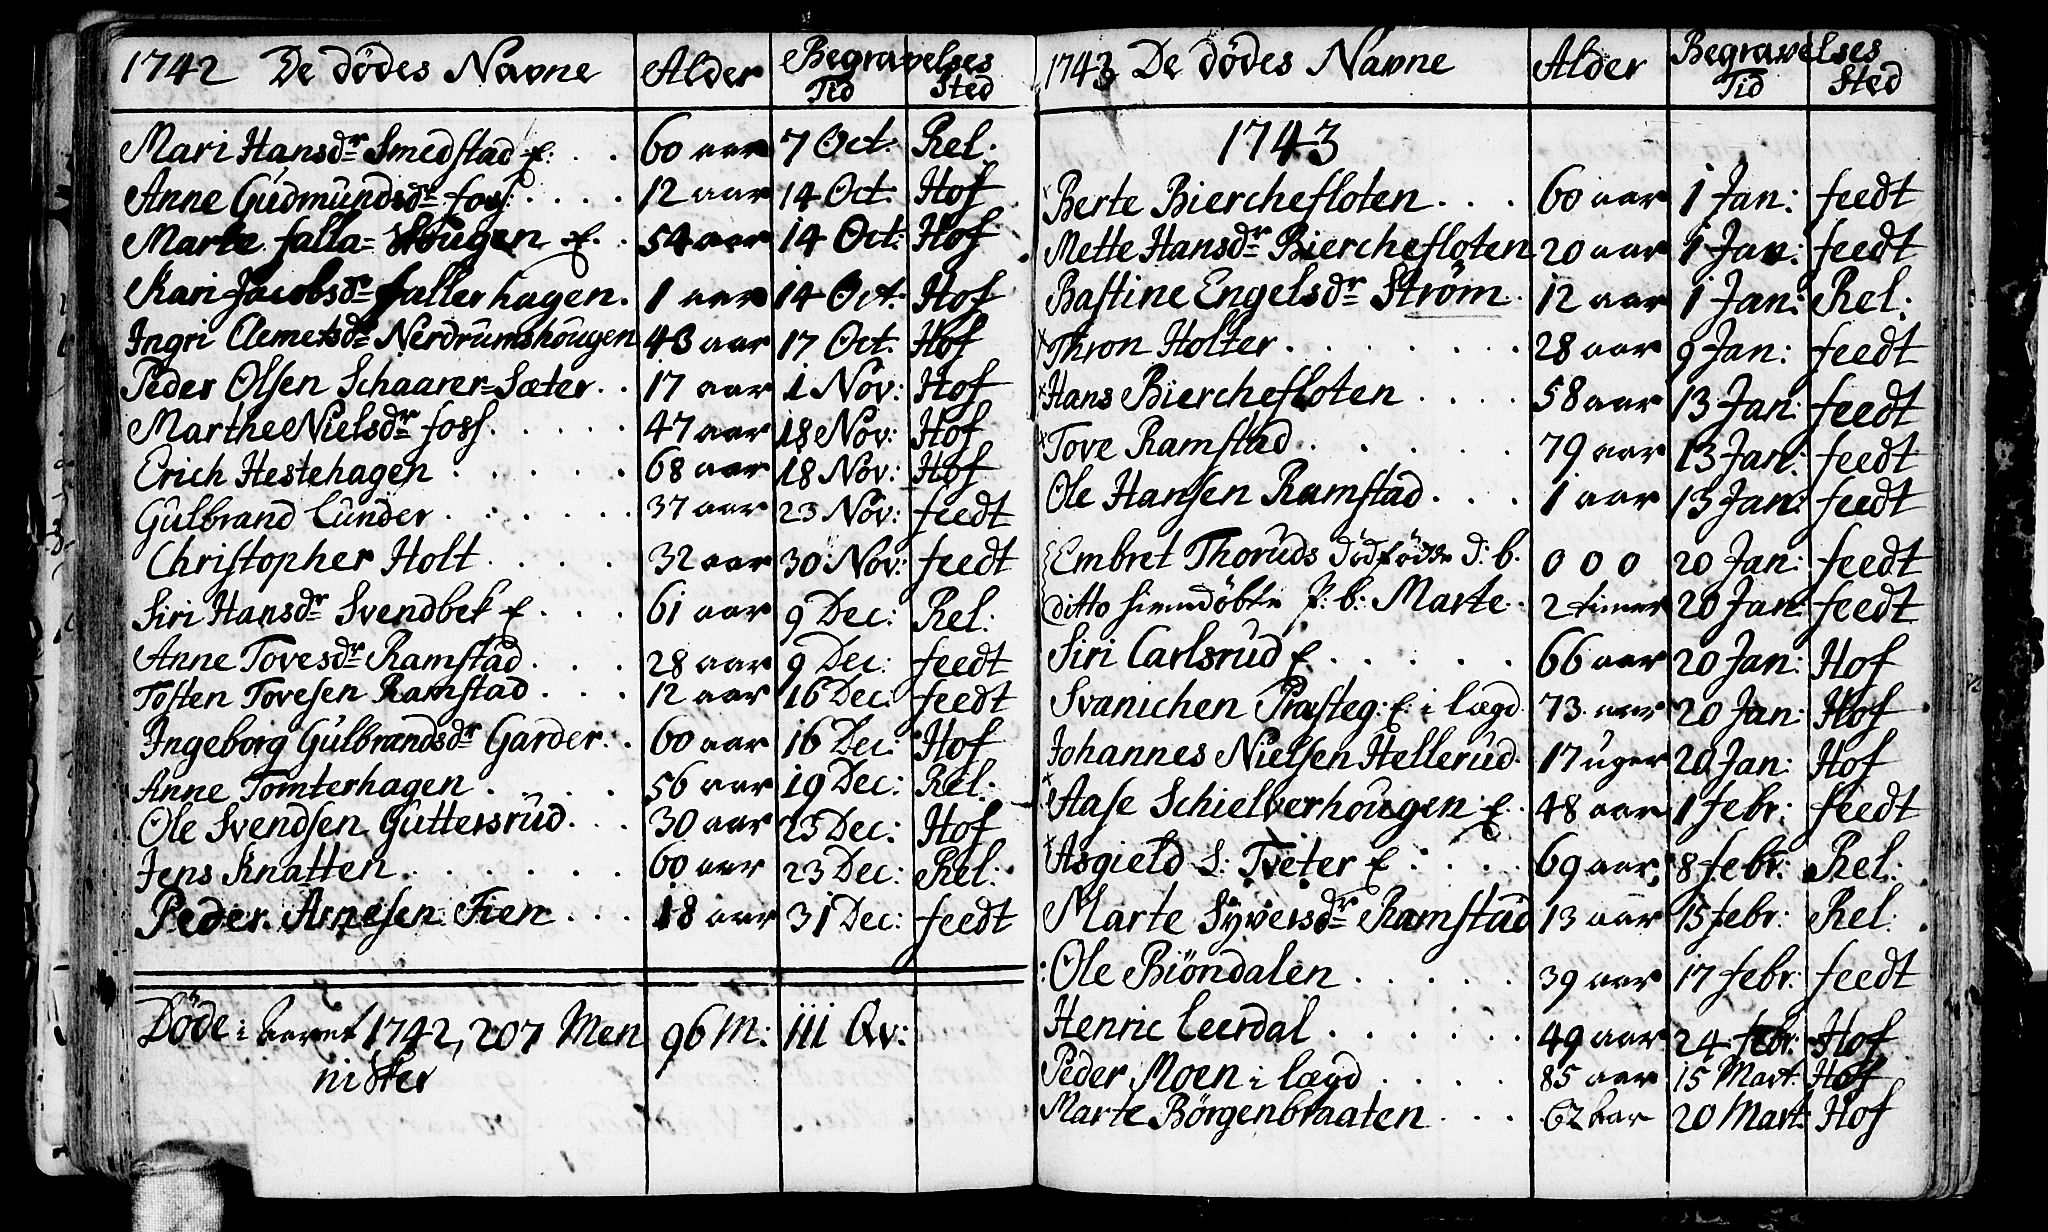 1742 De dödes Navne Alder Begravelses
Tid Sted
Mari Hansdr Smedstad E. 60 aar 7 Oct: Rel:
Anne Gudmundsdr foss 12 aar 14 Oct: Hof
Marte falla=Hougen E. 54 aar 14 Oct: Hof
Kari Jacobsdr fallerhagen. 1 aar 14 Oct: Hof
Ingri Clemetsdr Nerdrumshougen 43 aar 17 Oct. Hof
Peder Olsen Schaarer=Sæter. 17 aar 1 Nov: Hof
Marthe Nielsdr foss. 47 aar 18 Nov: Hof
Erich Hestehagen 68 aar 18 Nov: Hof
Gulbrand Lunder 37 aar 23 Nov: feedt
Christopher Holt 32 aar 30 Nov: feedt
Siri Hansdr Svendbek E. 61 aar 9 Dec: Rel:
Anne Tovesdr Ramstad 28 aar 9 Dec: feedt
Tosten Tovesen Ramstad 12 aar 16 Dec: feedt
Ingeborg Gulbrandsdr Garder. 60 aar 16 Dec: Hof
Anne Tomterhagen 56 aar 19 Dec: Rel:
Ole Svendsen Guttersrud. 30 aar 23 Dec: Hof
Jens Knatten 60 aar 23 Dec: Rel:
Peder Arnesen Fien 18 aar 31 Dec: feedt
Döde i Aaret 1742, 207 Men 96 M: 111 Qv:
nisker
1743 De dödes Navne Alder Begravelses
Tid Sted
1743
Berte Bierchefloten 60 aar 1 Jan: feedt
Mette Hansdr Bierchefloten 20 aar 1 Jan: feedt
Bastine Engelsdr Strøm 12 aar 1 Jan: Rel:
Thron Holter 28 aar 9 Jan: feedt
Hans Bierchefloten 58 aar 13 Jan: feedt
Tove Ramstad 79 aar 13 Jan: feedt
Ole Hansen Ramstad 1 aar 13 Jan: feedt
Embret Thoruds dödfödde d: b. 0 0 0 20 Jan: feedt
ditto hiemdöbte P: b: Marte 2 timer 20 Jan: feedt
Siri Carlsrud E. 66 aar 20 Jan: Hof
Svanichen Præsteg: E. i lægd 73 aar 20 Jan: Hof
Johannes Nielsen Hellerud 17 uger 20 Jan: Hof
Aase Schielverhougen E. 48 aar 1 febr: feedt
Asgield S: Tveter E 69 aar 8 febr: Rel:
Marte Syversdr Ramstad 13 aar 15 febr: Rel:
Ole Biöndalen 39 aar 17 febr: feedt
Henric Leerdal 49 aar 24 febr: Hof
Peder Moen i lægd 85 aar 15 Mart. Hof
Marte Börgenbraaten 62 aar 20 Mart. Hof